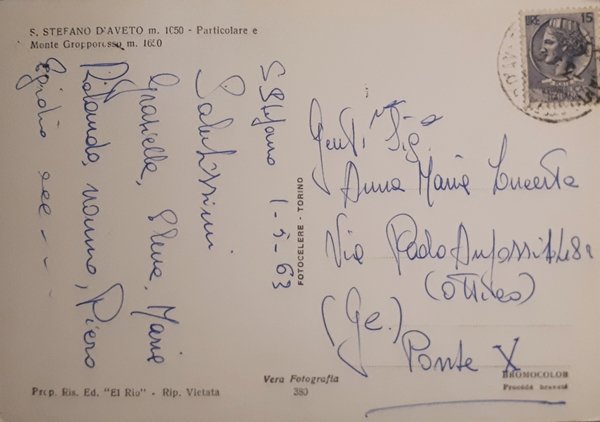 S. STEFANO D'AVETO m. 1050 - Particolare e
Monte Gropporosso m. 1650
S. Stefano 1-5-63
Salutissimi
Graziella, Elena, Maria
Rolando, nonno, Piero
Egidio ecc - - -
FOTOCELERE - TORINO
LIRE 15
Gent. Sig.
Anna Maria
Via Paolo
(ottico)
(Ge.)
Ponte X
Prop. Ris. Ed. "El Rio" - Rip. Vietata
Vera Fotografia
380
BROMOCOLOR